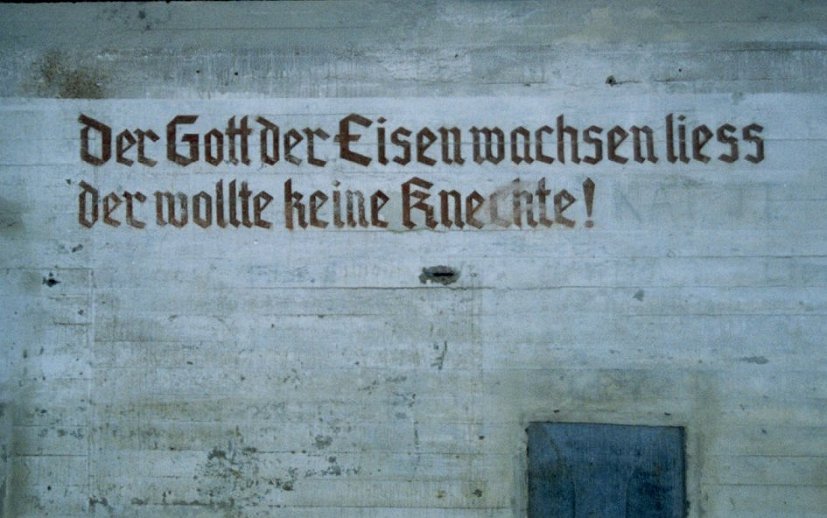 Der Gott der Eisen wachsen liess
der wollte keine Knechte!